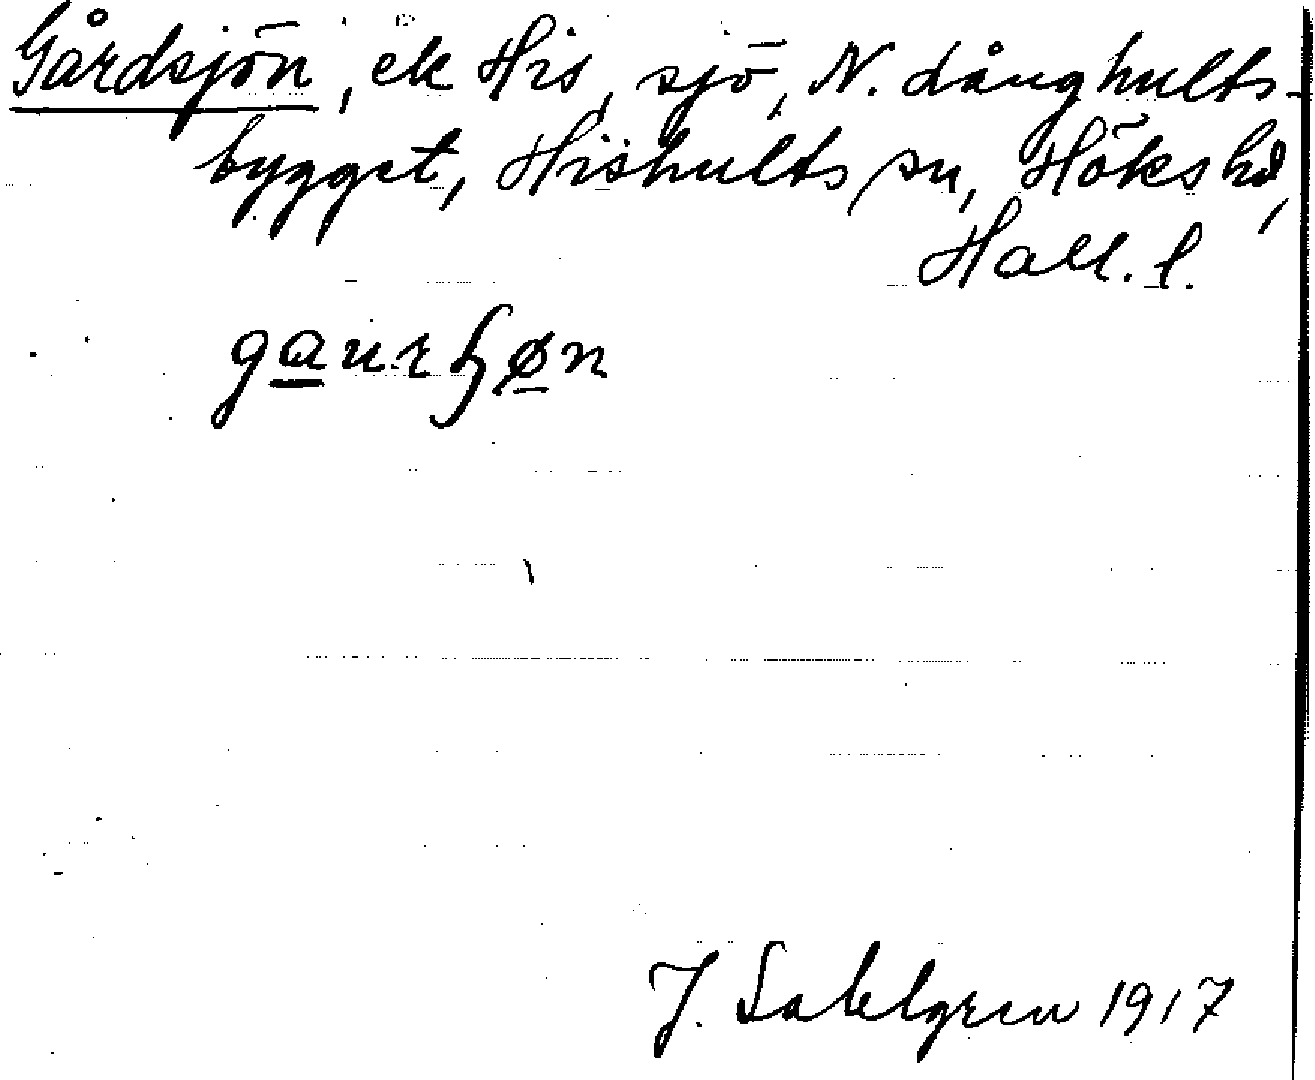 Gårdsjön, ek His, sjö, N. Långhults-
bygget, Hishults sn, Höks hd,
Hall. l.
gaurɧøn
J. Sahlgren 1917